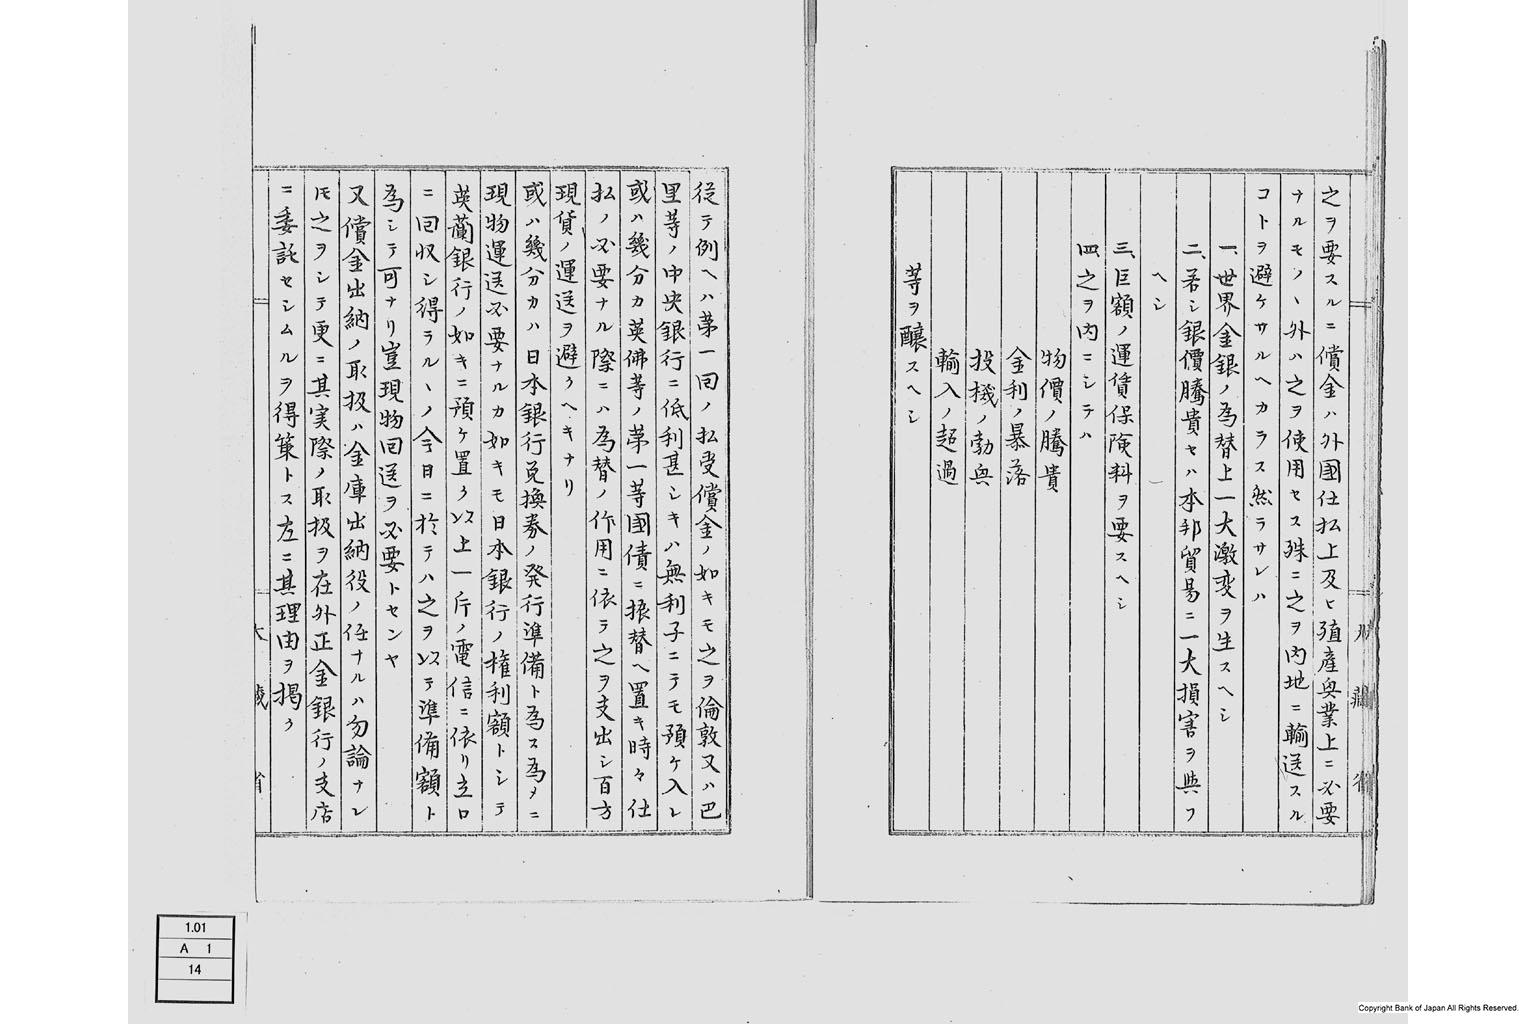 之ヲ要スルニ償金ハ外國仕払上及ヒ殖產興業上ニ必要
ナルモノヽ外ハ之ヲ使用セス殊ニ之ヲ内地ニ輸送スル
コトヲ避ケサルヘカラス然ラサレハ
一、世界金銀ノ為替上一大激変ヲ生スヘシ
二、若シ銀價騰貴セハ本邦貿易ニ一大損害ヲ與フ
ヘシ
三、巨額ノ運賃保険料ヲ要スヘシ
四、之ヲ内ニシテハ
物價ノ騰貴
金利ノ暴落
投機ノ勃興
輸入ノ超過
等ヲ釀スヘシ
從テ例ヘハ第一回ノ払受償金ノ如キモ之ヲ倫敦又ハ巴
里等ノ中央銀行ニ低利甚シキハ無利子ニテモ預ケ入レ
或ハ幾分カ英佛等ノ第一等國債ニ振替ヘ置キ時々仕
払ノ必要ナル際ニハ為替ノ作用ニ依テ之ヲ支出シ百方
現貨ノ運送ヲ避クヘキナリ
或ハ幾分カハ日本銀行兌換券ノ発行準備ト為ス為メニ
現物運送必要ナルカ如キモ日本銀行ノ権利額トシテ
英蘭銀行ノ如キニ預ケ置ク以上一片ノ電信ニ依リ立ロ
ニ回収シ得ラルヽノ今日ニ於テハ之ヲ以テ準備額ト
為シテ可ナリ豈現物回送ヲ必要トセンヤ
又償金出納ノ取扱ハ金庫出納役ノ任ナルハ勿論ナレ
𪜈之ヲシテ更ニ其実際ノ取扱ヲ在外正金銀行ノ支店
ニ委託セシムルヲ得策トス左ニ其理由ヲ揭ク
大藏省
1.01
A 1
14
Copyright Bank of Japan All Rights Reserved.